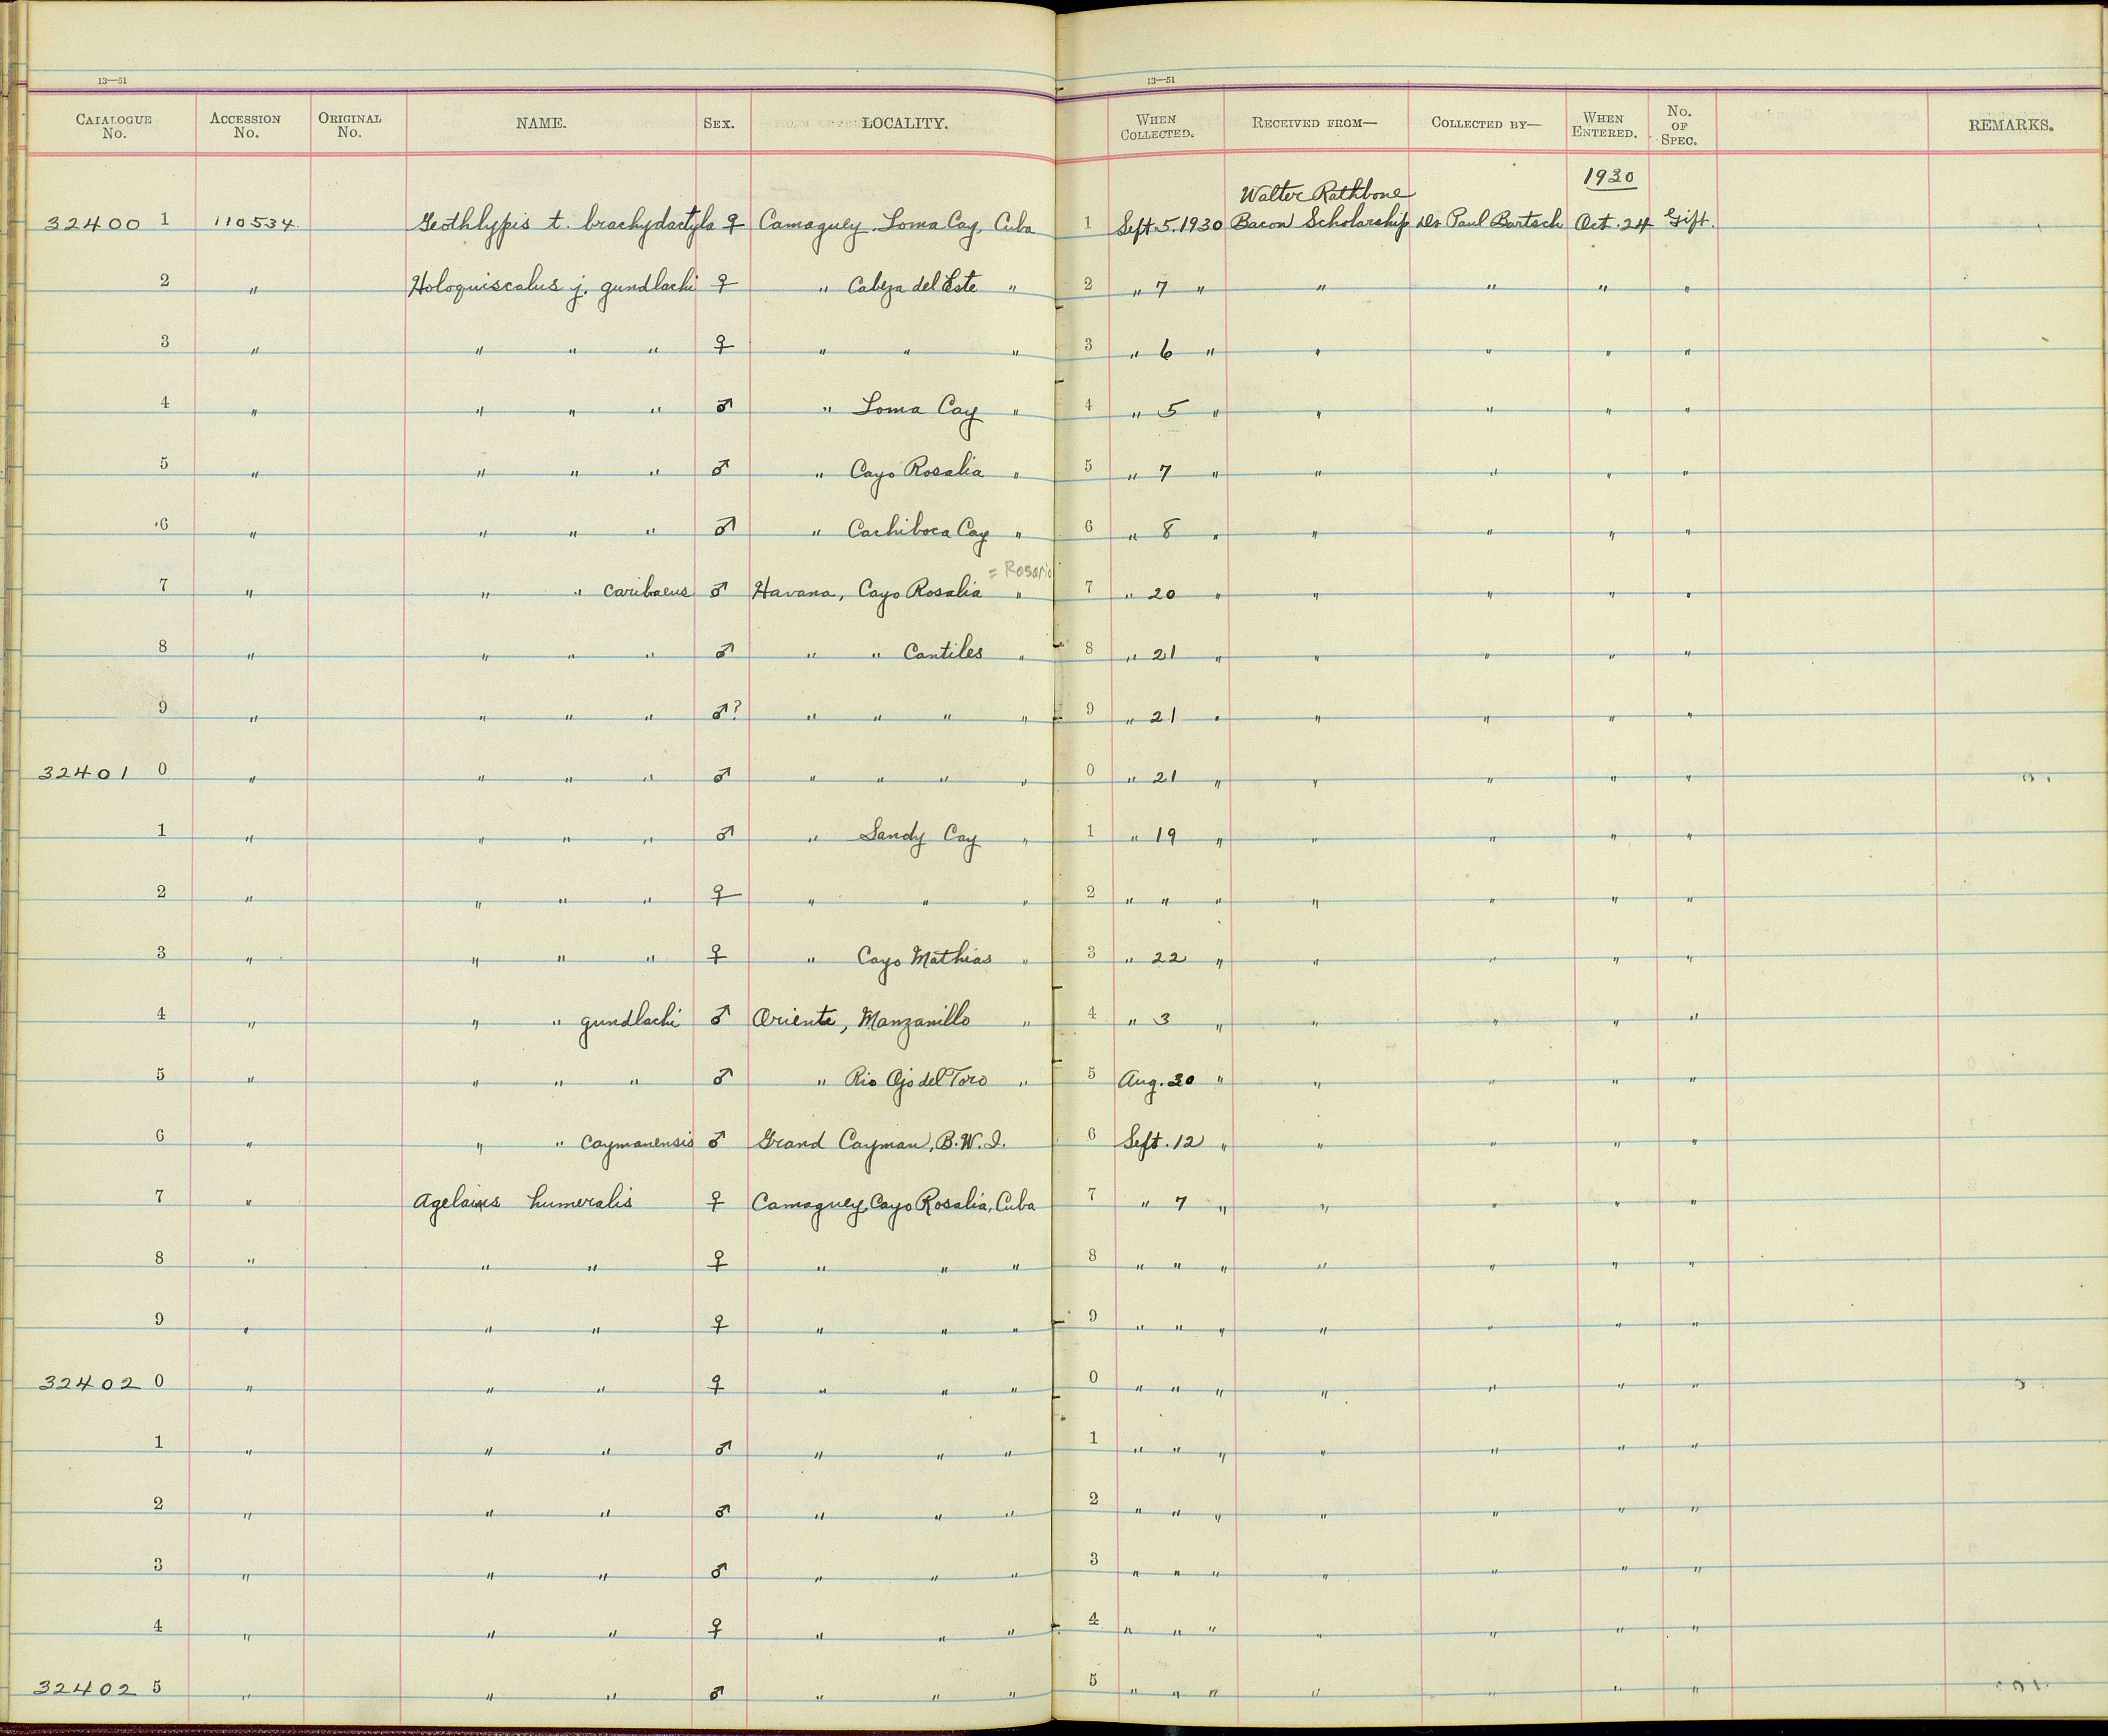 13—51 13—51
CATALOGUE No. ACCESSION No. ORIGINAL No. NAME. SEX. LOCALITY. WHEN COLLECTED. RECEIVED FROM— COLLECTED BY— WHEN ENTERED. No. OF SPEC. REMARKS.
1930
Walter Rathbone
32400 1 110534 Geothlypis t. brachydactyla ♀ Camaguey. Loma Cay, Cuba 1 Sept. 5. 1930 Bacon Scholarship Dr Paul Bartsch Oct. 24 Gift.
2 " Holoquiscalus j. gundlachi ♀ " Cabeza del Este " 2 " 7 " " " " "
3 " " " " ♀ " " " 3 " 6 " " " " "
4 " " " " ♂ " Loma Cay " 4 " 5 " " " " "
5 " " " " ♂ " Cayo Rosalia " 5 " 7 " " " " "
6 " " " " ♂ " Cachiboca Cay " 6 " 8 " " " " "
= Rosario
7 " " " caribaeus ♂ Havana, Cayo Rosalia " 7 " 20 " " " " "
8 " " " " ♂ " " Cantiles " 8 " 21 " " " " "
9 " " " " ♂? " " " " 9 " 21 " " " " "
32401 0 " " " " ♂ " " " " 0 " 21 " " " " "
1 " " " " ♂ " Sandy Cay " 1 " 19 " " " " "
2 " " " " ♀ " " " 2 " " " " " " "
3 " " " " ♀ " Cayo Mathias " 3 " 22 " " " " "
4 " " " gundlachi ♂ Oriente, Manzanillo " 4 " 3 " " " " "
5 " " " " ♂ " Rio Ojo del Toro " 5 Aug. 30 " " " " "
6 " " " caymanensis ♂ Grand Cayman, B.W.I. 6 Sept. 12 " " " " "
7 " Agelaius humeralis ♀ Camaguey, Cayo Rosalia, Cuba 7 " 7 " " " " "
8 " " " ♀ " " " 8 " " " " " " "
9 " " " ♀ " " " 9 " " " " " " "
32402 0 " " " ♀ " " " 0 " " " " " " "
1 " " " ♂ " " " 1 " " " " " " "
2 " " " ♂ " " " 2 " " " " " " "
3 " " " ♂ " " " 3 " " " " " " "
4 " " " ♀ " " " 4 " " " " " " "
32402 5 " " " ♂ " " " 5 " " " " " " "